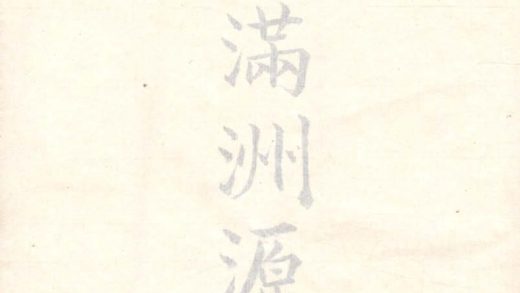 滿洲源